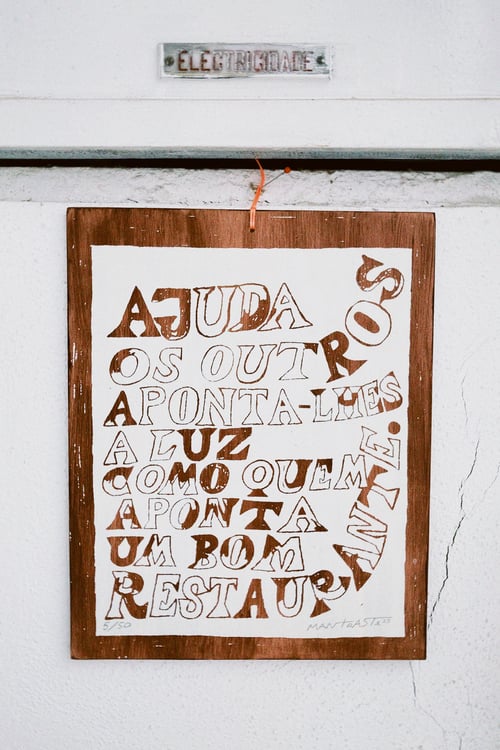 ELECTRICIDADE
AJUDA
OS OUTROS
APONTA-LHES
A LUZ
COMO QUEM
APONTA
UM BOM
RESTAURANTE.
5/50